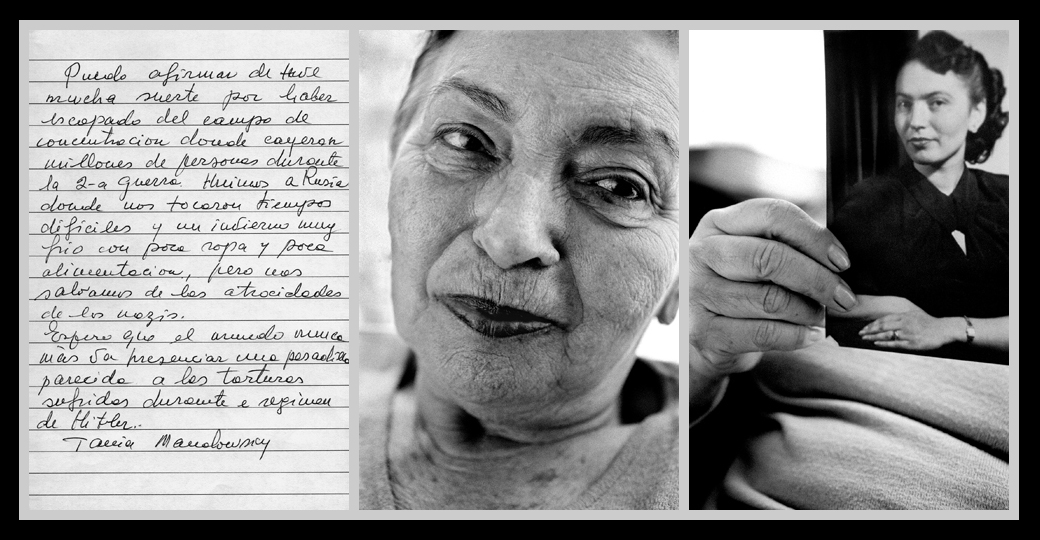 Puedo afirmar de tuve
mucha suerte por haber
escapado del campo de
concentracion donde cayeron
millones de personas durante
la 2-a guerra. Huimos a Rusia
donde nos tocaron tiempos
difíciles y un invierno muy
frio con poca ropa y poca
alimentacion, pero nos
salvamos de las atrocidades
de los nazis.
Espero que el mundo nunca
màs va presenciar una pesadilla
parecida a las torturas
sufridas durante e regimen
de Hitler..
Tania